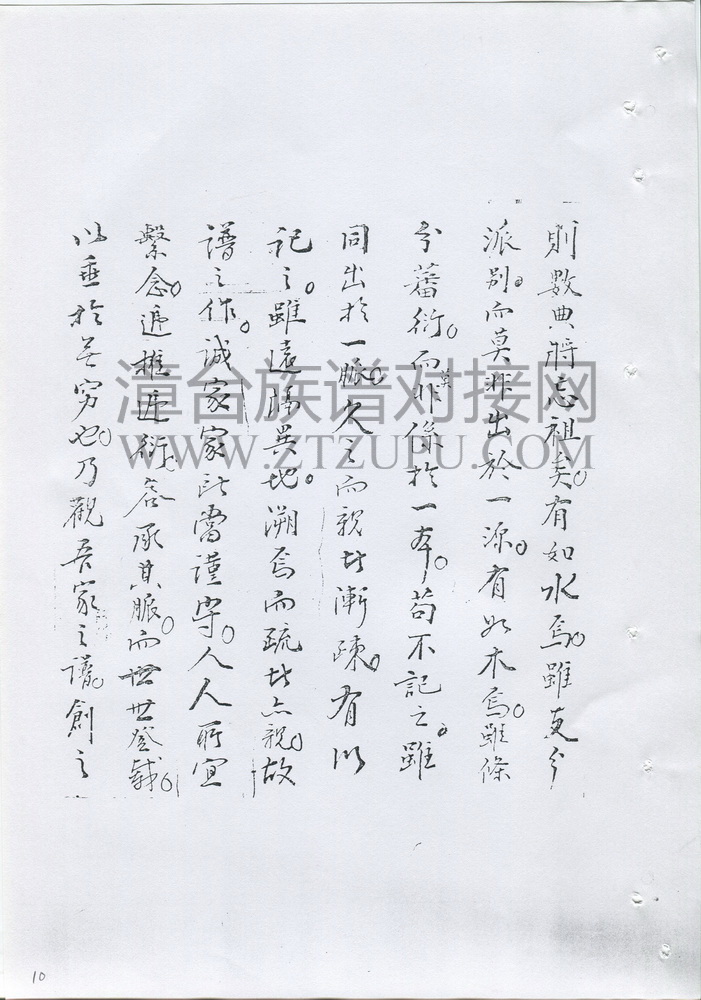 則數典將忘祖矣。有如水焉。雖支分
派別。而莫非出於一源。有如木焉。雖條
分蕃衍。而莫非係於一本。苟不記之。雖
同出於一脈。久之而親者漸疎。有以
記之。雖遠隔異地。溯焉而疏者亦親。故
譜之作。誠家家所當謹守。人人所宜
繫念。遞推遞衍。各承其脈。而世世登載。
以垂於無窮也。乃觀吾家之譜。創之
漳台族谱对接网
WWW.ZTZUPU.COM
10